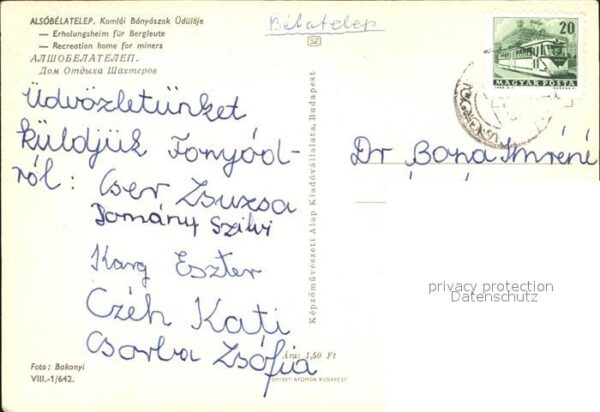 ALSÓBÉLATELEP. Komlói Bányászok Üdülője
— Erholungsheim für Bergleute
— Recreation home for miners
АЛШОБЕЛАТЕЛЕП.
Дом Отдыха Шахтеров
Bélatelep
SZ
20
MAGYAR POSTA
Üdvözletünket
küldjük Fonyód-
ról:
Cser Zsuzsa
Domány Szilvi
Karg Eszter
Czéh Kati
Csorba Zsófia
Dr Bona Imréné
Képzőművészeti Alap Kiadóvállalata, Budapest
privacy protection
Datenschutz
Ára: 1,50 Ft
Foto: Bakonyi
VIII.-1/642.
OFFSET-NYOMDA BUDAPEST